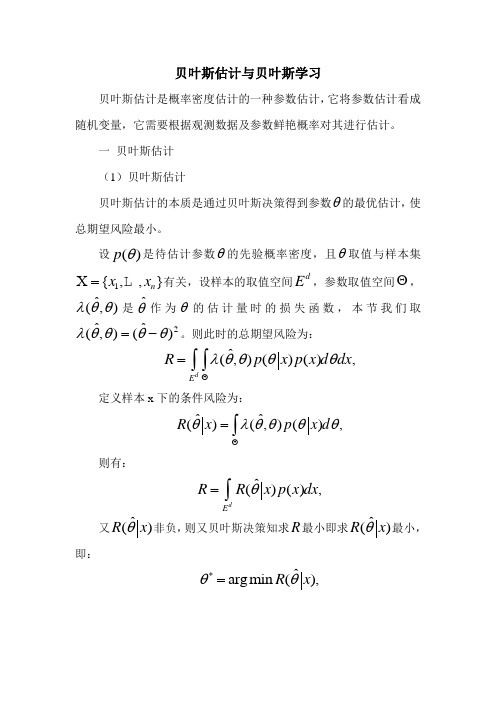 贝叶斯估计与贝叶斯学习
贝叶斯估计是概率密度估计的一种参数估计,它将参数估计看成
随机变量,它需要根据观测数据及参数鲜艳概率对其进行估计。
一 贝叶斯估计
(1)贝叶斯估计
贝叶斯估计的本质是通过贝叶斯决策得到参数θ的最优估计,使
总期望风险最小。
设p(θ)是待估计参数θ的先验概率密度,且θ取值与样本集
Χ={x₁,L ,xₙ}有关,设样本的取值空间Eᵈ,参数取值空间Θ,
λ(θ̂,θ)是θ̂作为θ的估计量时的损失函数,本节我们取
λ(θ̂,θ)=(θ̂−θ)²。则此时的总期望风险为:
R=∫_{Eᵈ}∫_Θ λ(θ̂,θ)p(θ|x)p(x)dθdx,
定义样本x下的条件风险为:
R(θ̂|x)=∫_Θ λ(θ̂,θ)p(θ|x)dθ,
则有:
R=∫_{Eᵈ} R(θ̂|x)p(x)dx,
又R(θ̂|x)非负,则又贝叶斯决策知求R最小即求R(θ̂|x)最小,
即:
θ*=arg min R(θ̂|x),